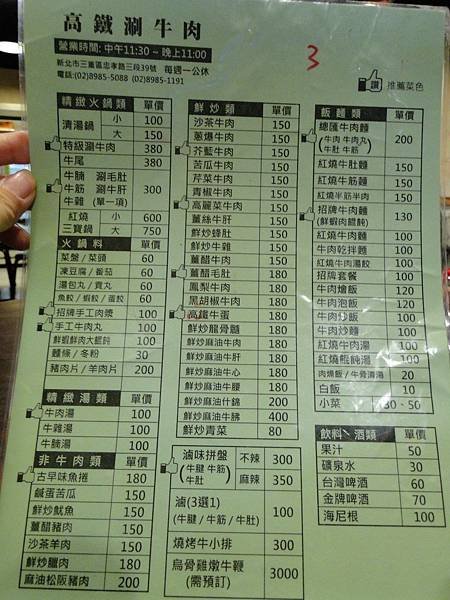 高鐵涮牛肉
營業時間: 中午11:30 ~ 晚上11:00
新北市三重區忠孝路三段39號 每週一公休
電話:(02)8985-5088 (02)8985-1191
3
讚 推薦菜色
精緻火鍋類 單價
清湯鍋 小 100
大 150
特級涮牛肉 380
牛尾 380
牛腩 涮毛肚
牛筋 涮牛肝 300
牛雜 (單一項)
紅燒 小 600
三寶鍋 大 750
火鍋料 單價
菜盤 / 菜頭 60
凍豆腐 / 番茄 60
湯包丸 / 貢丸 60
魚餃 / 蝦餃 / 蛋餃 60
招牌手工肉漿 100
手工牛肉丸 100
鮮蝦鮮肉大餛飩 100
麵條 / 冬粉 30
豬肉片 / 羊肉片 200
精緻湯類 單價
牛肉湯 100
牛雜湯 100
牛腩湯 100
非牛肉類 單價
古早味魚捲 180
鹹蛋苦瓜 150
鮮炒魷魚 150
薑醋豬肉 150
沙茶羊肉 150
鮮炒臘肉 180
麻油松阪豬肉 200
鮮炒類 單價
沙茶牛肉 150
蔥爆牛肉 150
芥藍牛肉 150
苦瓜牛肉 150
芹菜牛肉 150
青椒牛肉 150
高麗菜牛肉 150
薑絲牛肝 150
鮮炒蜂肚 150
鮮炒牛雜 150
薑醋牛肉 150
薑醋毛肚 180
鳳梨牛肉 180
黑胡椒牛肉 180
高鐵牛蛋 180
鮮炒龍骨髓 180
鮮炒麻油牛肉 180
鮮炒麻油牛肝 180
鮮炒麻油牛心 180
鮮炒麻油牛腰 180
鮮炒麻油什錦 200
鮮炒麻油牛腩 400
鮮炒青菜 80
滷味拼盤 不辣 300
(牛腱 牛筋)
牛肚 麻辣 350
滷(3選1)
(牛腱 / 牛筋 / 牛肚) 100
燒烤牛小排 300
烏骨雞燉牛鞭
(需預訂) 3000
飯麵類 單價
總匯牛肉麵
(牛肉 牛肉丸 200
牛肚 牛筋)
紅燒牛肚麵 150
紅燒牛筋麵 150
紅燒半筋半肉 150
招牌牛肉麵
(鮮蝦肉餛飩) 130
紅燒牛肉麵 100
牛肉乾拌麵 100
紅燒牛肉湯餃 100
招牌套餐 100
牛肉燴飯 120
牛肉泡飯 120
牛肉炒飯 100
牛肉炒麵 100
紅燒牛肉湯 100
紅燒餛飩湯 100
肉燥飯 / 牛骨清湯 20
白飯 10
小菜 30、50
飲料、酒類 單價
果汁 50
礦泉水 30
台灣啤酒 60
金牌啤酒 70
海尼根 100